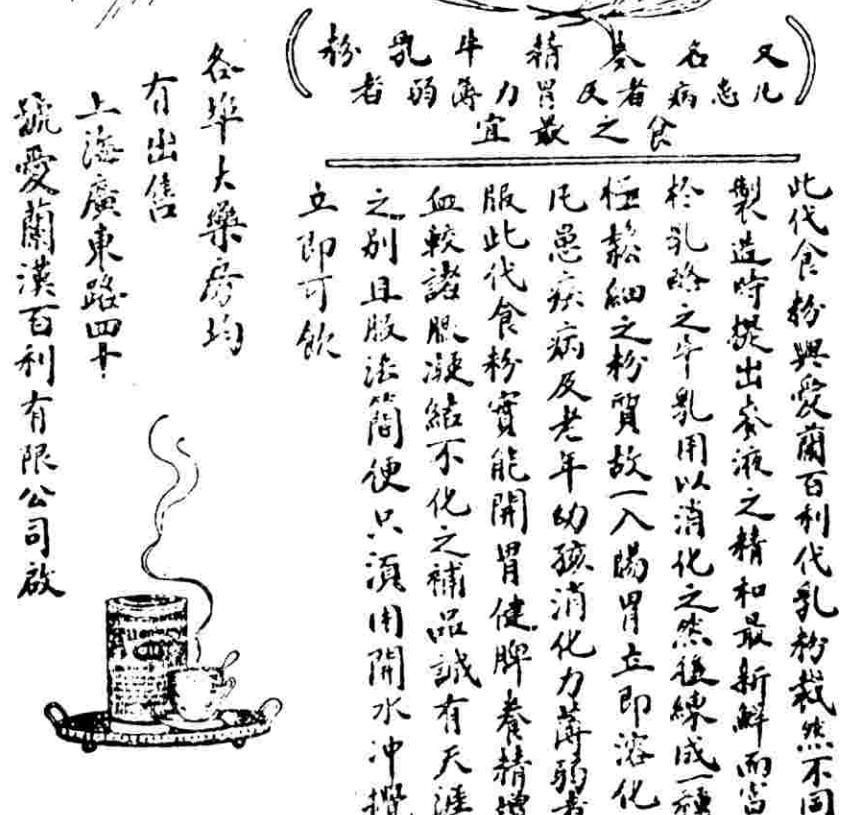 又名麥精牛乳粉
凡患病者及胃力薄弱者
食之最宜
此代食粉與愛蘭百利代乳粉截然不同
製造時提出麥液之精和最新鮮而富
於乳酪之牛乳用以消化之然後練成一種
極鬆細之粉質故一入腸胃立即溶化
凡患疾病及老年幼孩消化力薄弱者
服此代食粉實能開胃健脾養精增
血較諸服凝結不化之補品誠有天涯
之別且服法簡便只須用開水冲攪
立即可飲
各埠大藥房均
有出售
上海廣東路四十
號愛蘭漢百利有限公司啟